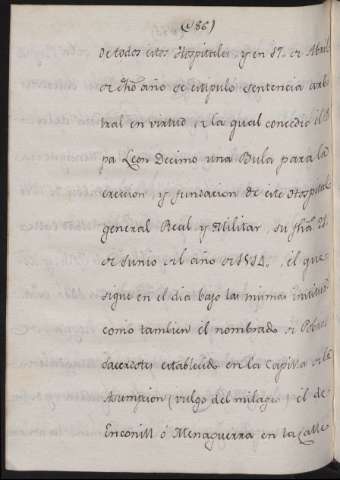 (86)
de todos estos Hospitales, y en 17. de Abril
de dho año se estipuló sentencia arvi
tral en virtud, de la qual concedio el P
pa Leon Decimo una Bula para la
ereccion, y fundacion de este Hospital
general Real y Militar, su fha 21.
de Junio del año de 1514. el que
sigue en el dia bajo las mismas
como tambien el nombrado de Pobres
sacerdotes establecido en la Capilla de la
Asumpcion (vulgo del milagro) el de
Enconill ó Menaguerra en la Calle